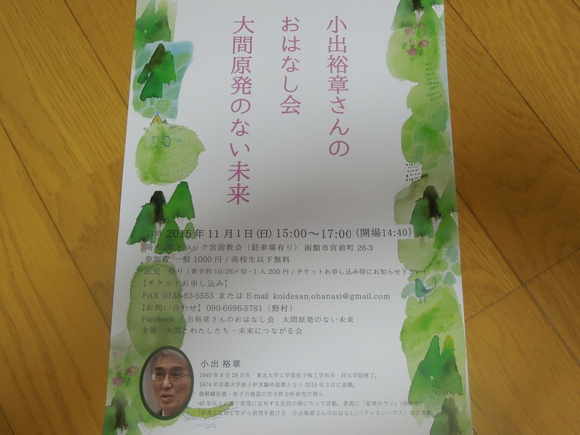 小出裕章さんの
おはなし会
大間原発のない未来
2015年11月1日(日) 15:00～17:00 (開場14:40)
宮前教会 (駐車場有り) 函館市宮前町 26-3
一般1000円 / 高校生以下無料
有り (要予約 10/26〆切・1人200円 / チケットお申し込み時にお知らせ下さい)
【チケットお申し込み】
FAX 0138-83-5553 または E-mail koidesan.ohanasi@gmail.com
【お問い合わせ】 090-6696-5781 (野村)
Facebook 小出裕章さんのおはなし会 大間原発のない未来
主催 大間とわたしたち・未来につながる会
小出 裕章
1949年8月29日生 東北大学工学部原子核工学科卒・同大学院修了。
1974年京都大学原子炉実験所助教となり2015年3月に退職。
放射線計測・原子力施設の安全性分析研究の傍ら、